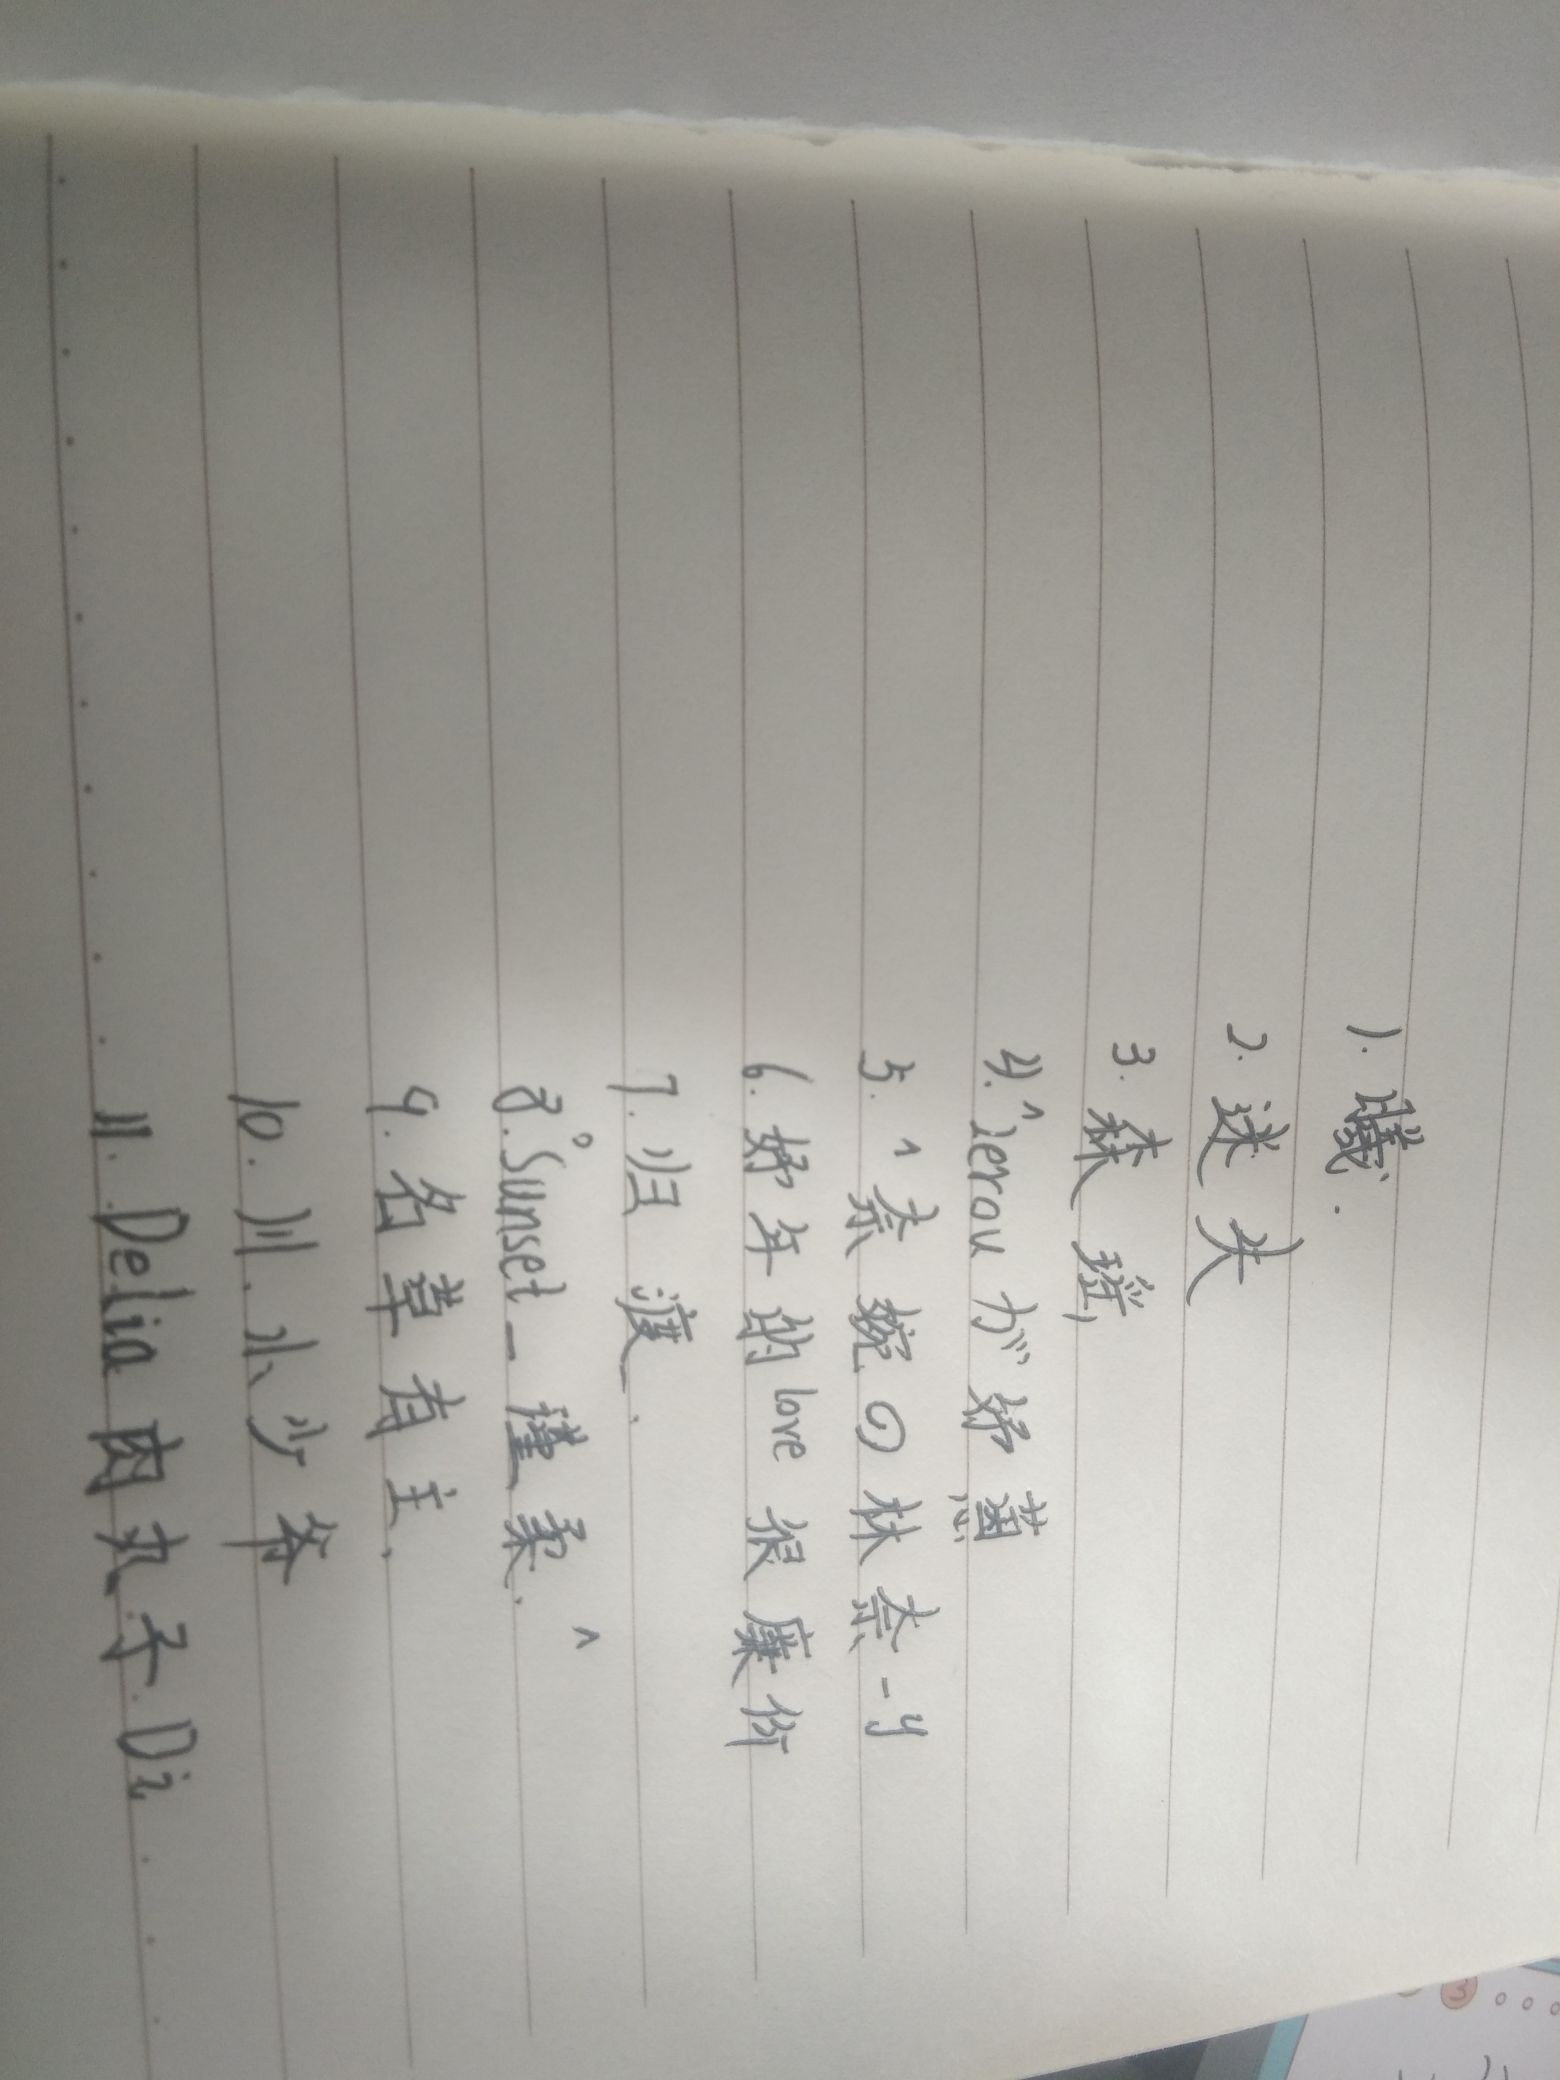 1. 曦.
2. 迷失
3. 森瑶
4. ^Zerou が妤蔥
5. ^奈婉の林奈-y
6. 妤年的love很廉价
7. 归渡.
8.°Sunset_瑾柔. ^
9. 名草有主.
10. 川.小少爷
11. Delia肉丸子.Di
3